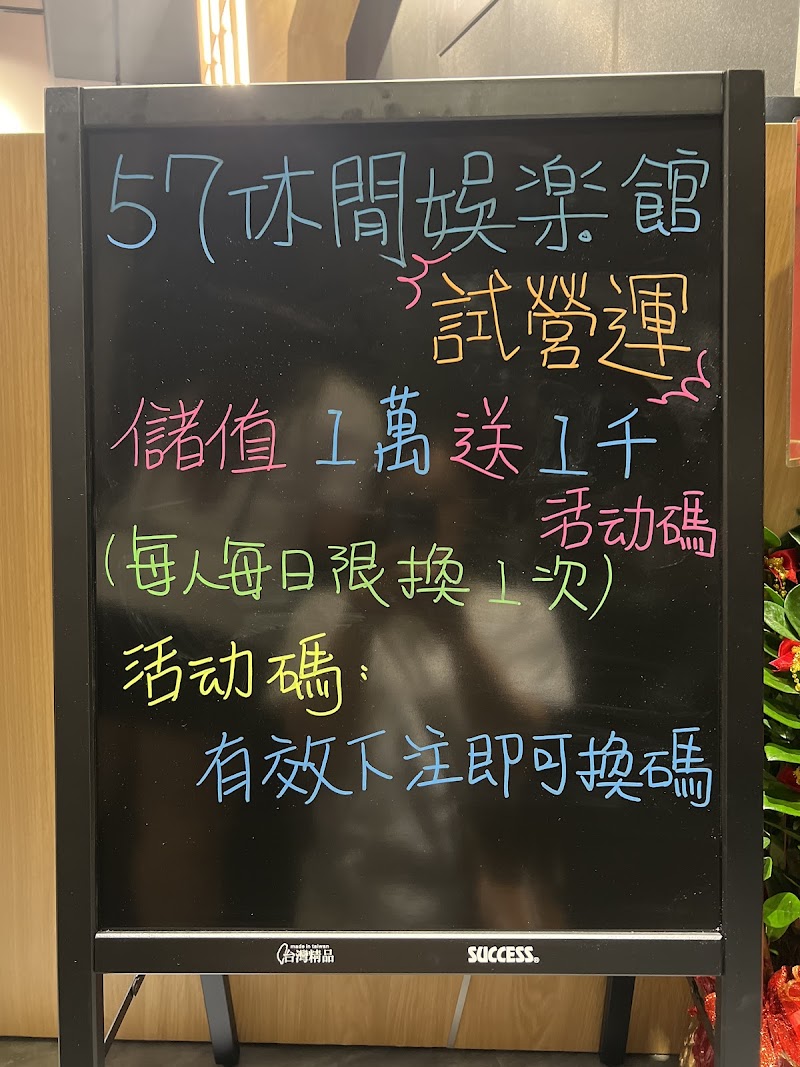 57休閒娛楽館
試營運
儲值1萬送1千
活动碼
(每人每日限換1次)
活动碼:
有效下注即可換碼
made in taiwan
台灣精品
SUCCESS®